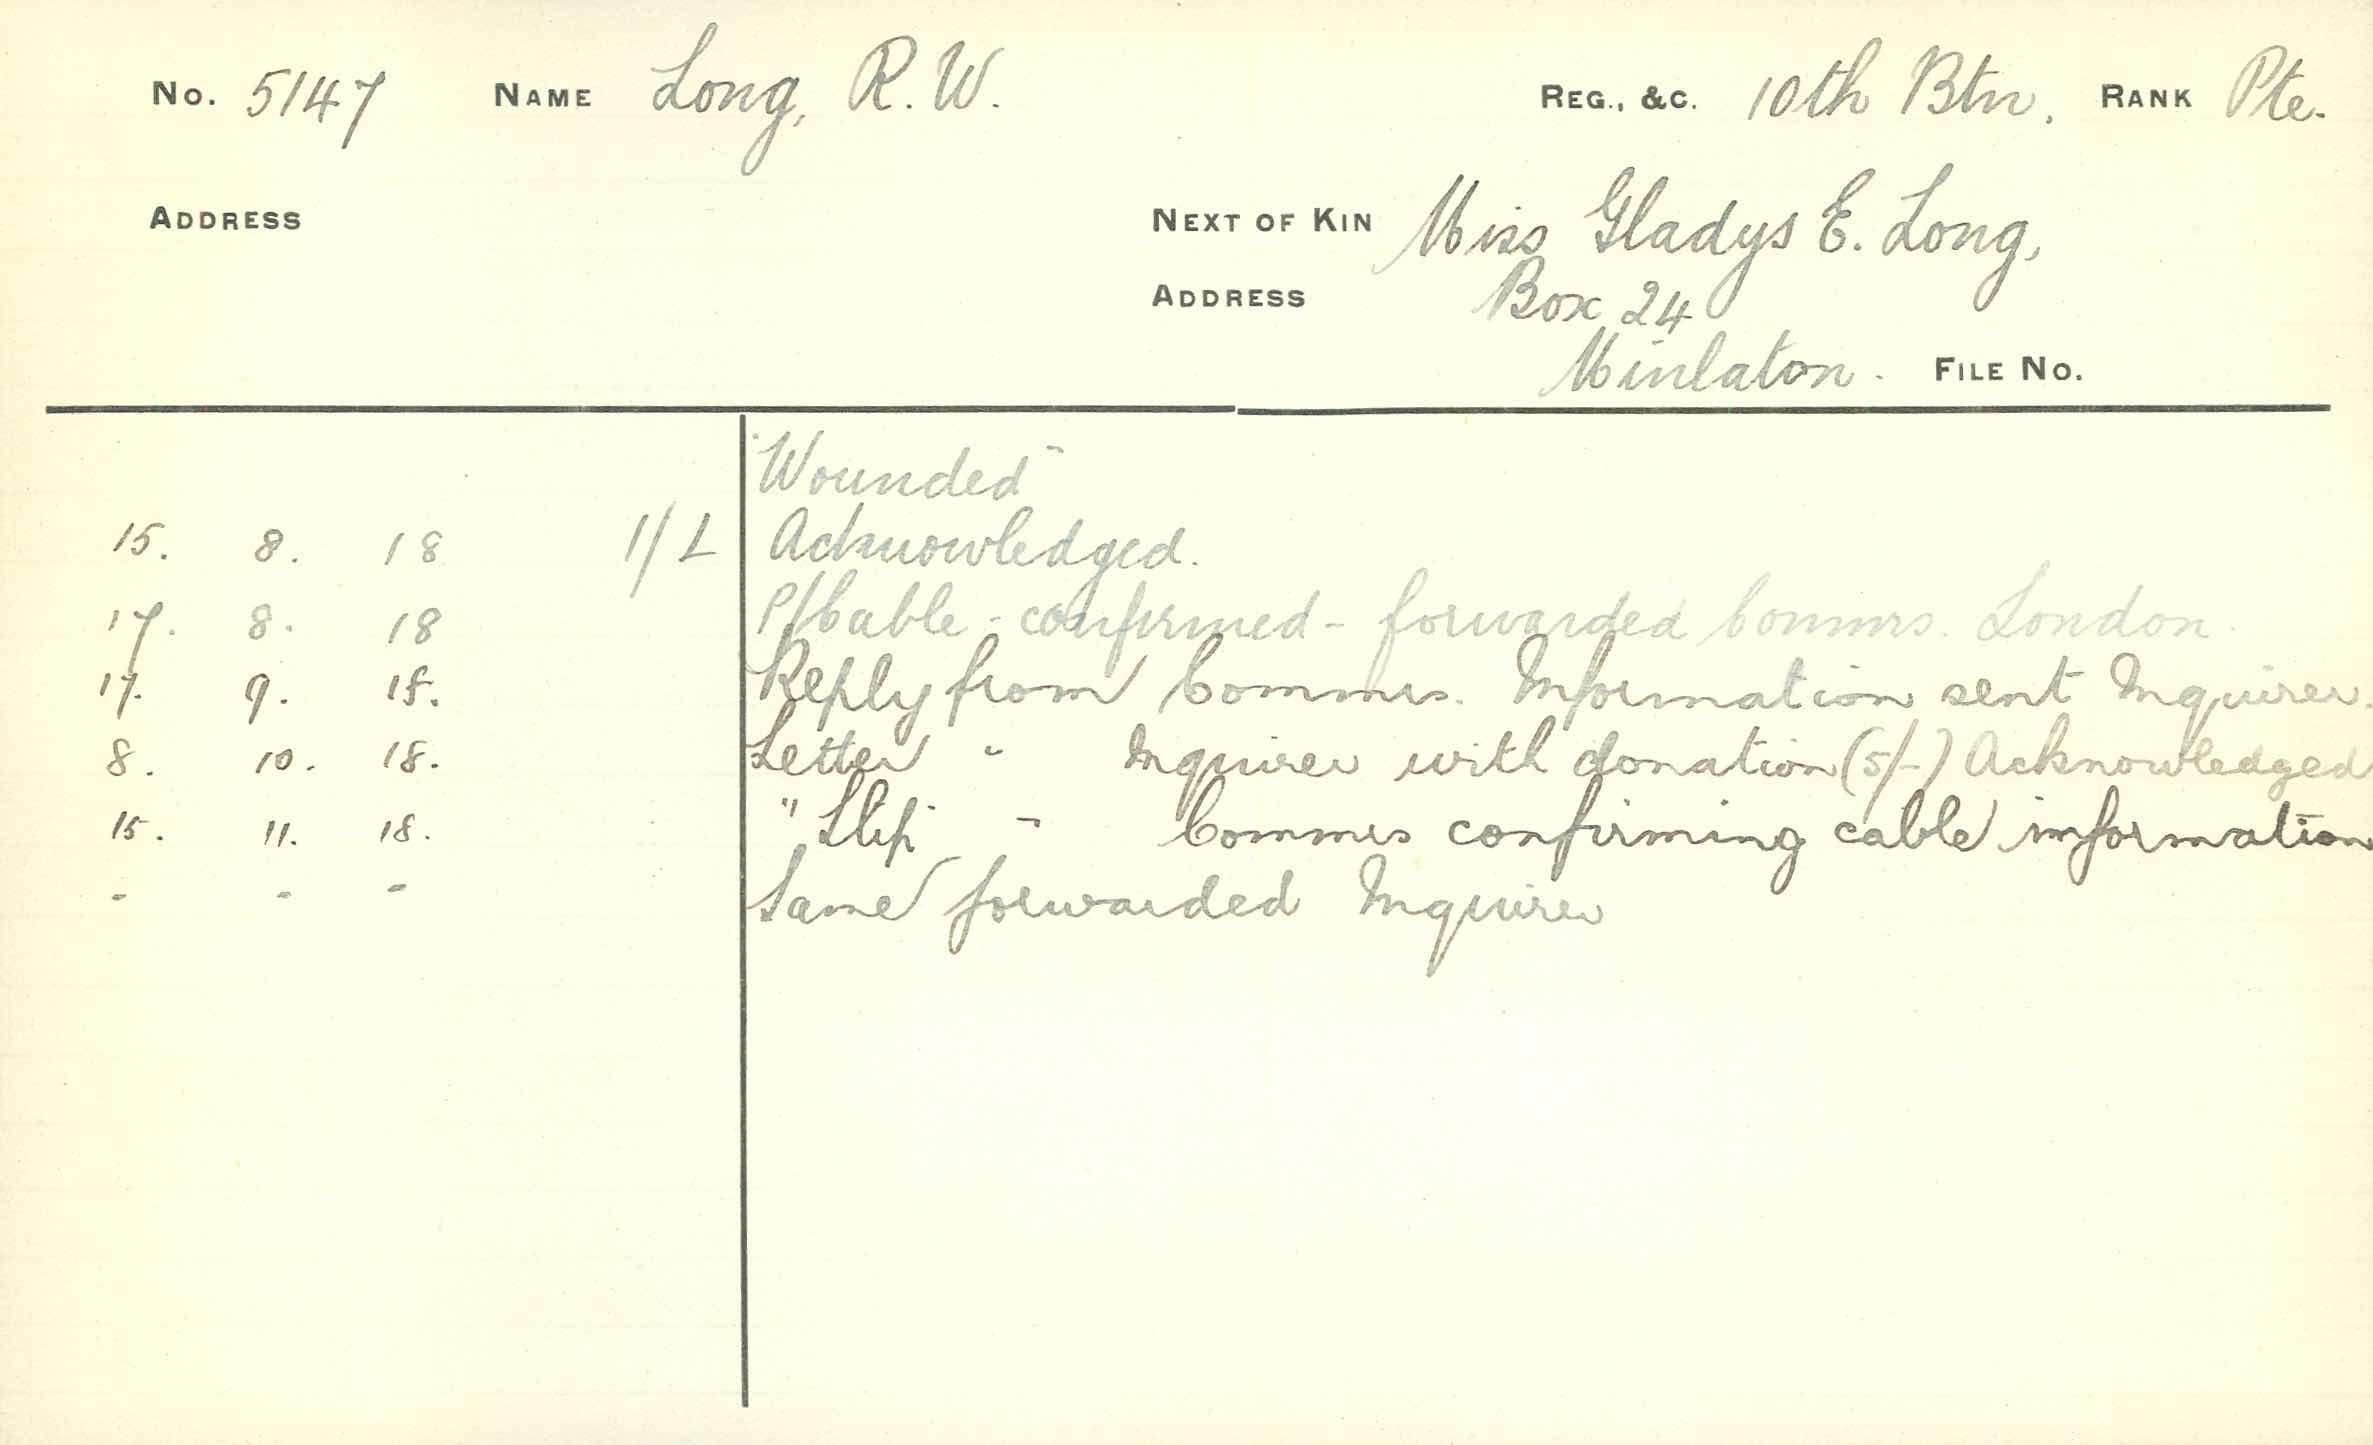 No. 5147 NAME Long, R. W. REG., &C. 10th Btn. RANK Pte.
ADDRESS NEXT OF KIN Miss Gladys E. Long,
ADDRESS Box 24
Minlaton. FILE No.
"Wounded"
15. 8. 18 I/L Acknowledged.
17. 8. 18 P/Cable - confirmed - forwarded Commrs. London.
17. 9. 18. Reply from Commrs. Information sent Inquirer.
8. 10. 18. Letter " Inquirer with donation (5/-) Acknowledged
15. 11. 18. "Slip" " Commrs confirming cable information
" " " Same forwarded Inquirer